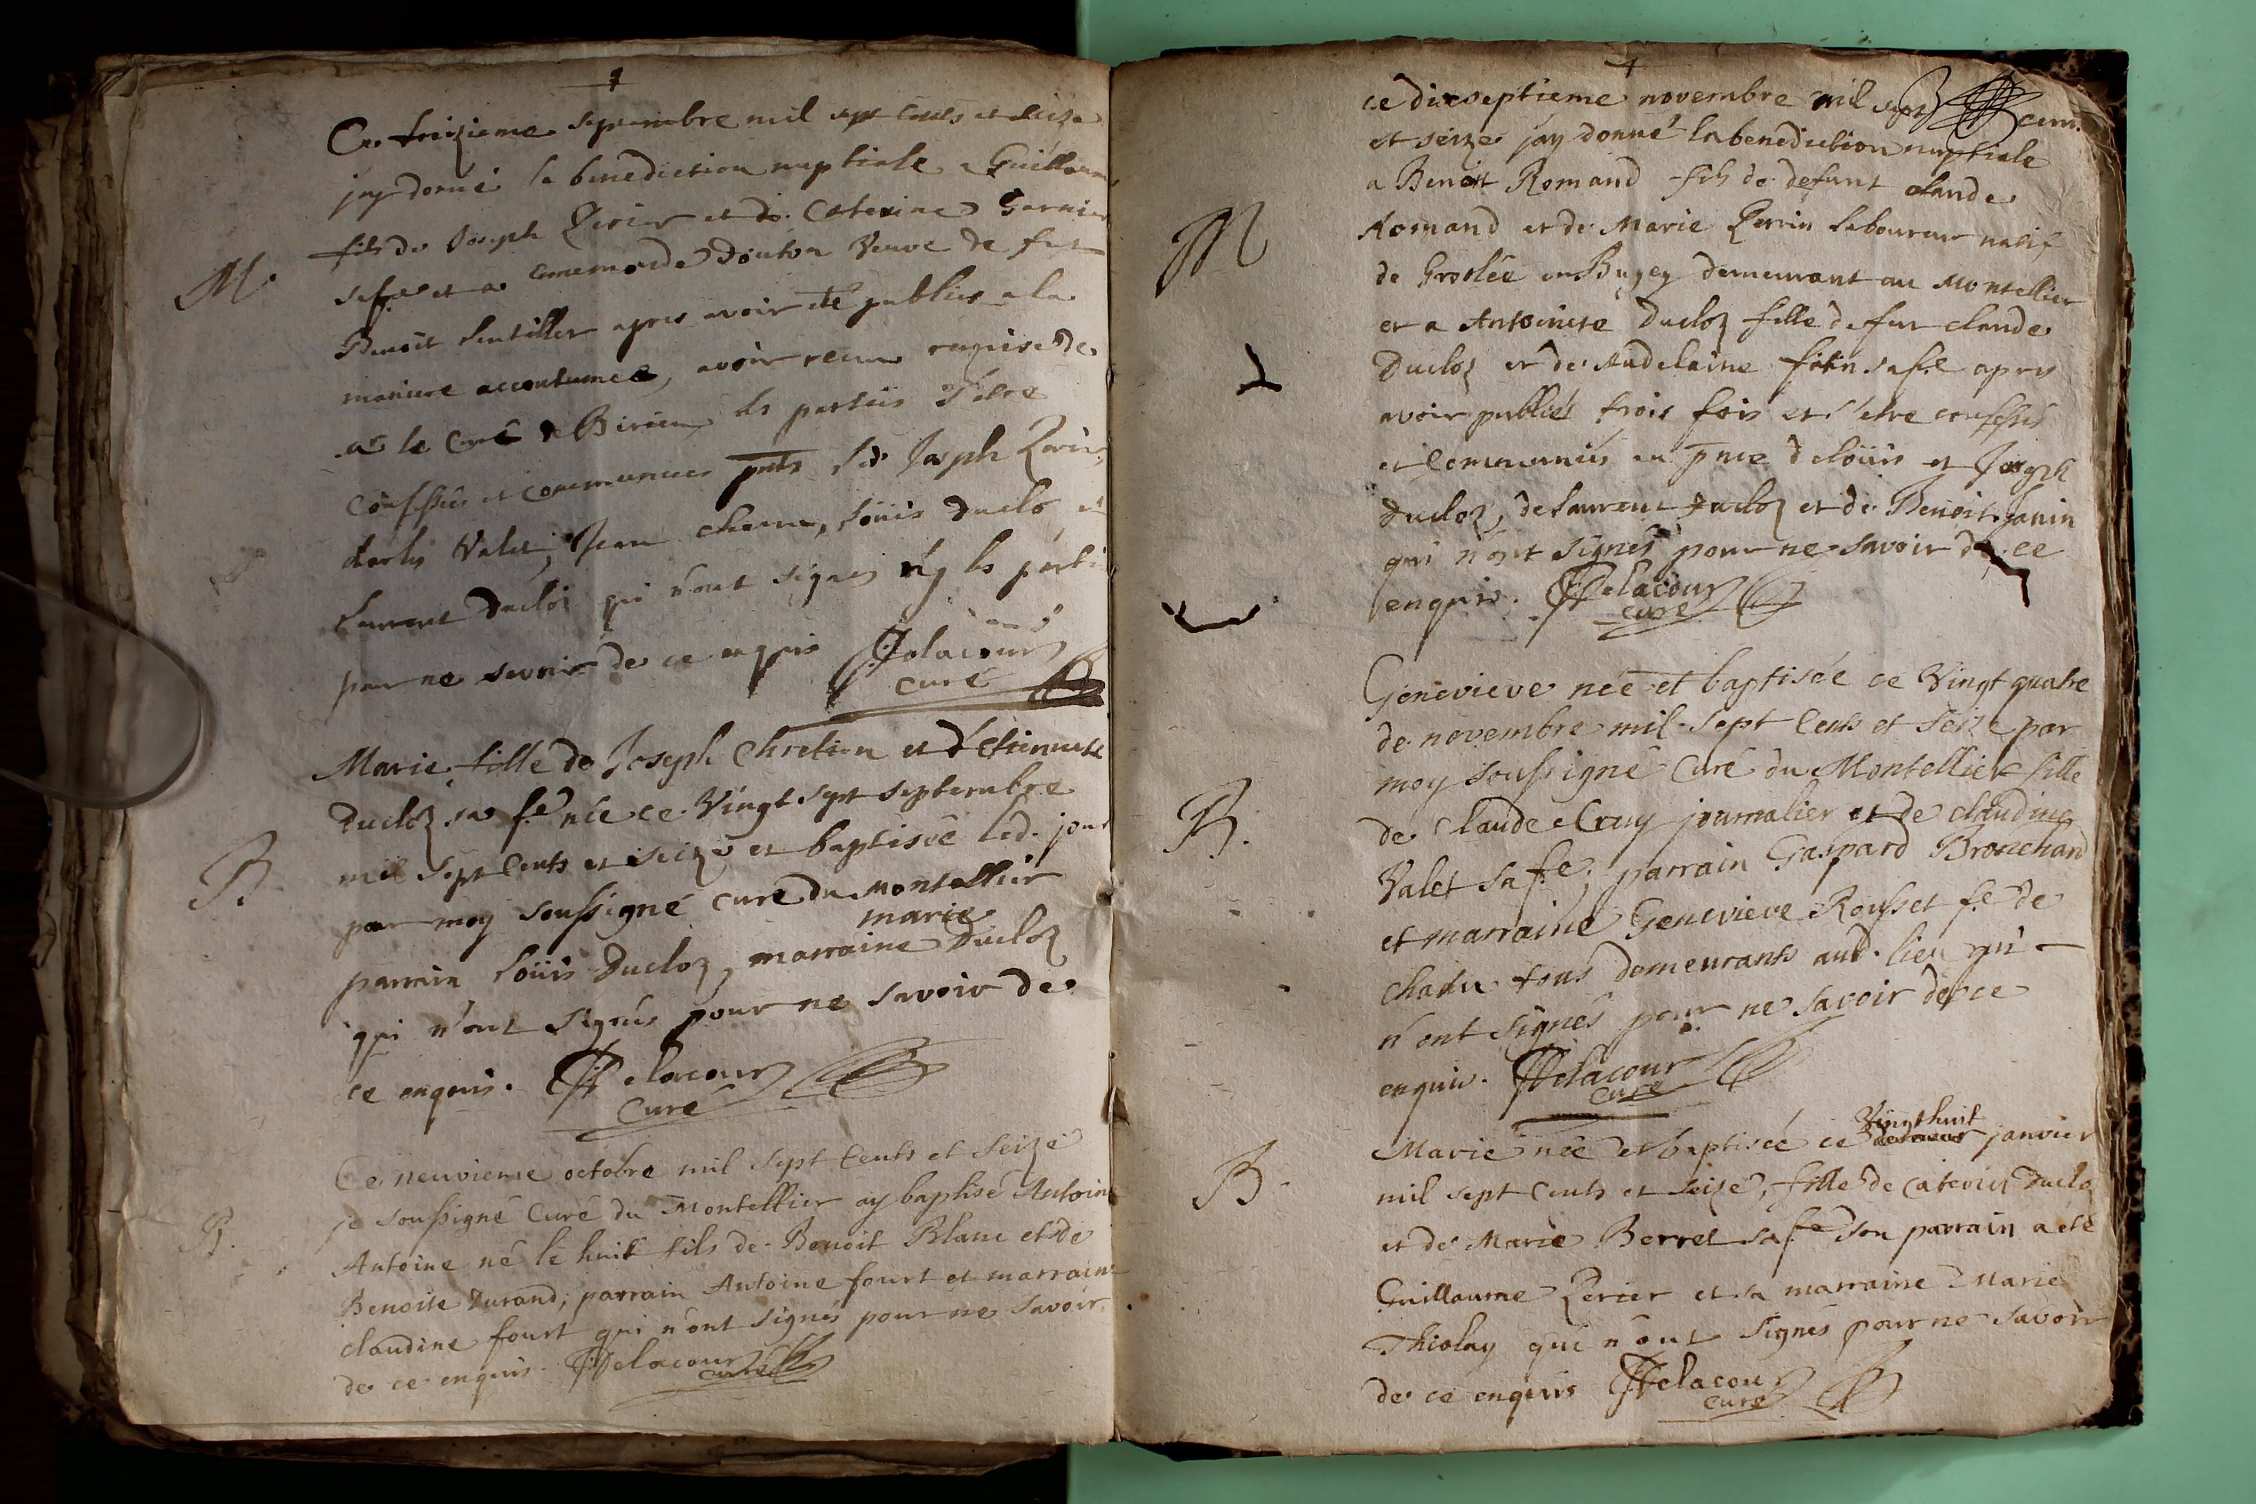 Ce treizieme septembre mil sept cents et seize
jay donné la benediction nuptiale a Guillaume
fils de Joseph Perier et de Caterine Garnier
sa fe et a emmemonde Douton Veuve de fut
Benoit apres avoir été publies a la
M.
maniere accoutumee, avoir receu remise de
mr le Curé de Birieu, les parties s'etre
confessés et communiés pnts led. Joseph Perier,
charles Valet, Jean charm, Loüis Duclo et
Laurent Ducloz qui n'ont signes ny les parties
pour ne savoir de ce enquis Delacour
curé
Marie fille de Joseph Chretien et d'Etiennete
Ducloz sa fe née ce Vingt sept septembre
mil sept cents et seize et baptisée led. jour
B.
par moy soussigné curé du Montellier
marie
parrain Loüis Ducloz, marraine Ducloz
qui n'ont signés pour ne savoir de
ce enquis. Delacour
Curé
Ce neuvieme octobre mil sept cents et seize
je soussigné Curé du Montellier ay baptisé Antoine
B.
Antoine né le huit fils de Benoit Blanc et de
Benoite Durand, parrain Antoine fourt et marraine
claudine fourt qui n'ont signés pour ne savoir
de ce enquis. Delacour
curé
ce dixseptieme novembre mil sept cens
et seize jay donné la benediction nuptiale
a Benoit Romand fils de defunt claude
M
Romand et de Marie Perrin laboureur natif
de Groslée en Bugey demeurant au Montellier
et a Antoinete Ducloz fille de fut claude
Ducloz et de Madelaine sa fe apres
avoir publiés trois fois et s'etre confessés
et communiés en pnce de Loüis et Joseph
Ducloz, de Laurent Ducloz et de Benoit Janin
qui n'ont signés pour ne savoir de ce
enquis. Delacour
curé
Genevieve née et baptisée ce Vingt quatre
de novembre mil sept Cents et seize par
moy soussigné Curé du Montellier fille
B.
de Claude Cruy journalier et de claudine
Valet sa fe; parrain Gaspard Bronchard
et marraine Genevieve Rousset fe de
chatu tous demeurants aud. lieu qui
n'ont signés pour ne savoir de ce
enquis. Delacour
curé
Vingt huit
Marie née et baptisée ce janvier
B.
mil sept Cents et seize, fille de caterin Duclo
et de Marie Berret sa fe son parrain a été
Guillaume Perier et sa marraine Marie
Thiolay qui n'ont signés pour ne savoir
de ce enquis Delacour
curé